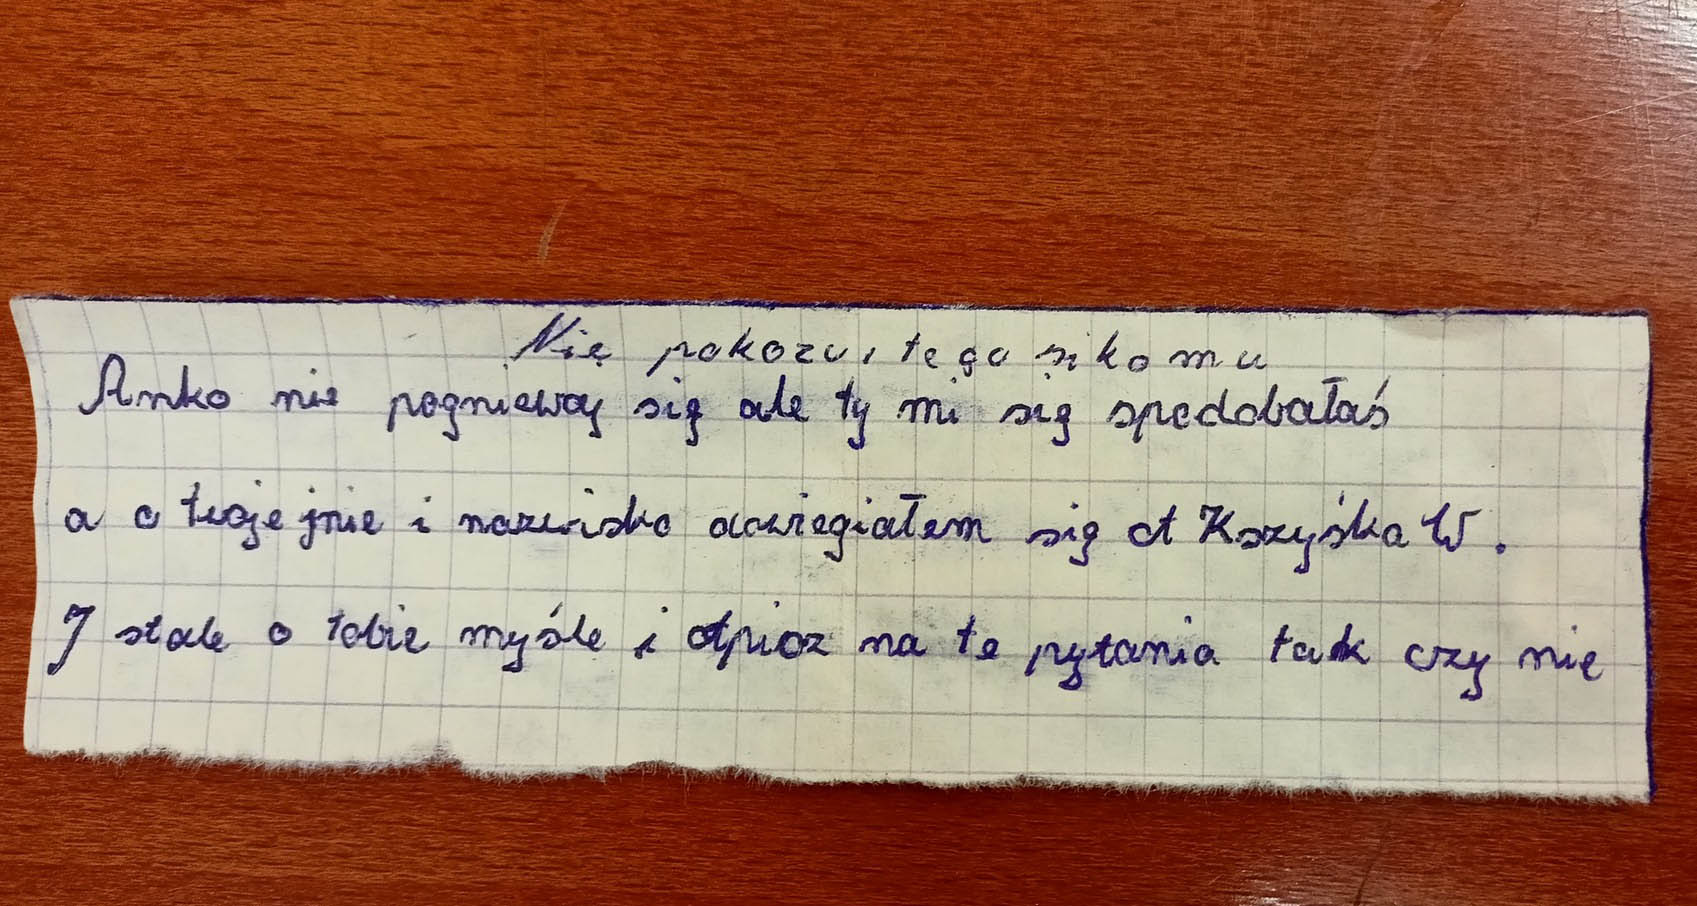 Nię pokozuj tego nikomu
Anko nie pogniewaj się ale ty mi się spodobałaś
a o twoje jmie i nazwisko dowiegiałem się ot Kszyśka W.
J stale o tobie myśle i otpisz na te pytania tak czy nie